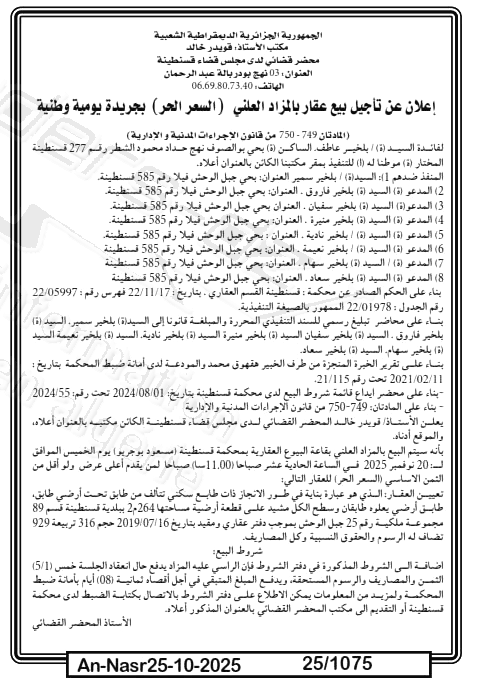 الجمهورية الجزائرية الديمقراطية الشعبية
مكتب الأستاذ: قويدر خالد
محضر قضائي لدى مجلس قضاء قسنطينة
العنوان: 03 نهج بودربالة عبد الرحمان
الهاتف: 06.69.80.73.40
إعلان عن تأجيل بيع عقار بالمزاد العلني (السعر الحر) بجريدة يومية وطنية
(المادتان 749- 750 من قانون الإجراءات المدنية و الإدارية)
لفائدة السيد (ة) / بلخير عاطف. الساكن (ة) بحي بوالصوف نهج حداد محمود الشطر رقم 277 قسنطينة
المختار (ة) موطنا له (ا) للتنفيذ بمقر مكتبنا الكائن بالعنوان أعلاه.
المنفذ ضدهم 1): السيد(ة) / بلخير سمير العنوان: بحي جبل الوحش فيلا رقم 585 قسنطينة.
2) المدعو (ة) السيد (ة) بلخير فاروق . العنوان: بحي جبل الوحش فيلا رقم 585 قسنطينة.
3) المدعو (ة) السيد (ة) بلخير سفيان . العنوان بحي جبل الوحش فيلا رقم 585 قسنطينة.
4) المدعو (ة) السيد (ة) بلخير منيرة . العنوان: بحي جبل الوحش فيلا رقم 585 قسنطينة.
5) المدعو (ة) السيد (ة) / بلخير نادية. العنوان : بحي جبل الوحش فيلا رقم 585 قسنطينة.
6) المدعو (ة) السيد (ة) / بلخير نعيمة . العنوان: بحي جبل الوحش فيلا رقم 585 قسنطينة
7) المدعو (ة) / السيد (ة) بلخير سهام. العنوان: بحي جبل الوحش فيلا رقم 585 قسنطينة
8) المدعو (ة) السيد (ة) بلخير سعاد. العنوان: بحي جبل الوحش فيلا رقم 585 قسنطينة
بناء على الحكم الصادر عن محكمة : قسنطينة القسم العقاري . بتاريخ : 22/11/17 فهرس رقم : 22/05997
رقم الجدول : 22/01978 الممهور بالصيغة التنفيذية.
بناء على محاضر تبليغ رسمي للسند التنفيذي المحررة والمبلغة قانونا إلى السيد(ة) بلخير سمير. السيد (ة)
بلخير فاروق . السيد (ة) بلخير سفيان السيد (ة) بلخير منيرة السيد (ة) بلخير نادية. السيد (ة) بلخير نعيمة السيد
(ة) بلخير سهام. السيد (ة) بلخير سعاد.
بناء على تقرير الخبرة المنجزة من طرف الخبير هقهوق محمد والمودعة لدى أمانة ضبط المحكمة بتاريخ :
2021/02/11 تحت رقم 21/115.
-بناء على محضر ايداع قائمة شروط البيع لدى محكمة قسنطينة بتاريخ: 2024/08/01 تحت رقم: 2024/55
- بناء على المادتان: 749-750 من قانون الإجراءات المدنية والإدارية
يعلن الأستاذ/ قويدر خالد المحضر القضائي لدى مجلس قضاء قسنطينة الكائن مكتبه بالعنوان أعلاه،
والموقع أدناه.
بأنه سيتم البيع بالمزاد العلني بقاعة البيوع العقارية بمحكمة قسنطينة (مسعود بوجريو) يوم الخميس الموافق
لـ: 20 نوفمبر 2025 في الساعة الحادية عشر صباحا (11.00سا) صباحا لمن يقدم أعلى عرض ولو أقل من
الثمن الاساسي (السعر الحر) للعقار التالي:
تعيين العقار: الذي هو عبارة بناية في طور الانجاز ذات طابع سكني تتألف من طابق تحت أرضي طابق،
طابق أرضي يعلوه طابقان وسطح الكل مشيد على قطعة أرضية مساحتها 264م2 ببلدية قسنطينة قسم 89
مجموعة ملكية رقم 25 جبل الوحش بموجب دفتر عقاري ومقيد بتاريخ 2019/07/16 حجم 316 تربيعة 929
تضاف له الرسوم والحقوق النسبية وكل المصاريف.
شروط البيع:
اضافة الى الشروط المذكورة في دفتر الشروط فإن الراسي عليه المزاد يدفع حال انعقاد الجلسة خمس (5/1)
الثمن والمصاريف والرسوم المستحقة، ويدفع المبلغ المتبقي في أجل أقصاه ثمانية (08) أيام بأمانة ضبط
المحكمة ولمزيد من المعلومات يمكن الاطلاع على دفتر الشروط بالاتصال بكتابة الضبط لدى محكمة
قسنطينة أو التقديم الى مكتب المحضر القضائي بالعنوان المذكور أعلاه.
الأستاذ المحضر القضائي
An-Nasr25-10-2025
25/1075